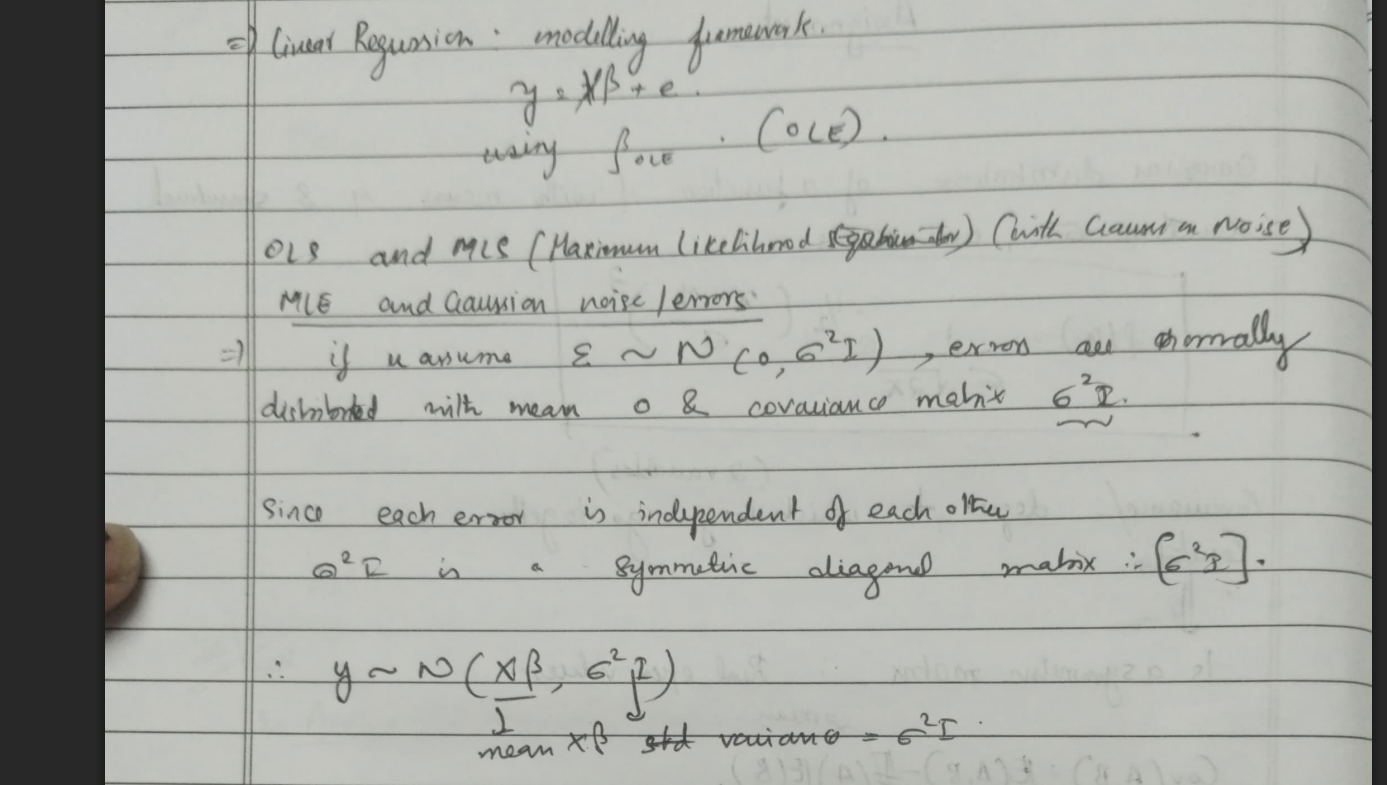 => Linear Regression : modelling framework.
y = Xβ + e.
using β OLE . (OLE).
OLS and MLS (Maximum Likelihood ) (with Gaussian Noise)
MLE and Gaussian noise / errors.
=> if u assume ε ~ N (0, σ²I) , errors are normally
distributed with mean 0 & covariance matrix σ²I.
Since each error is independent of each other
σ²I is a symmetric diagonal matrix :- [σ²I].
∴ y ~ N (Xβ, σ²I)
mean Xβ std variance = σ²I